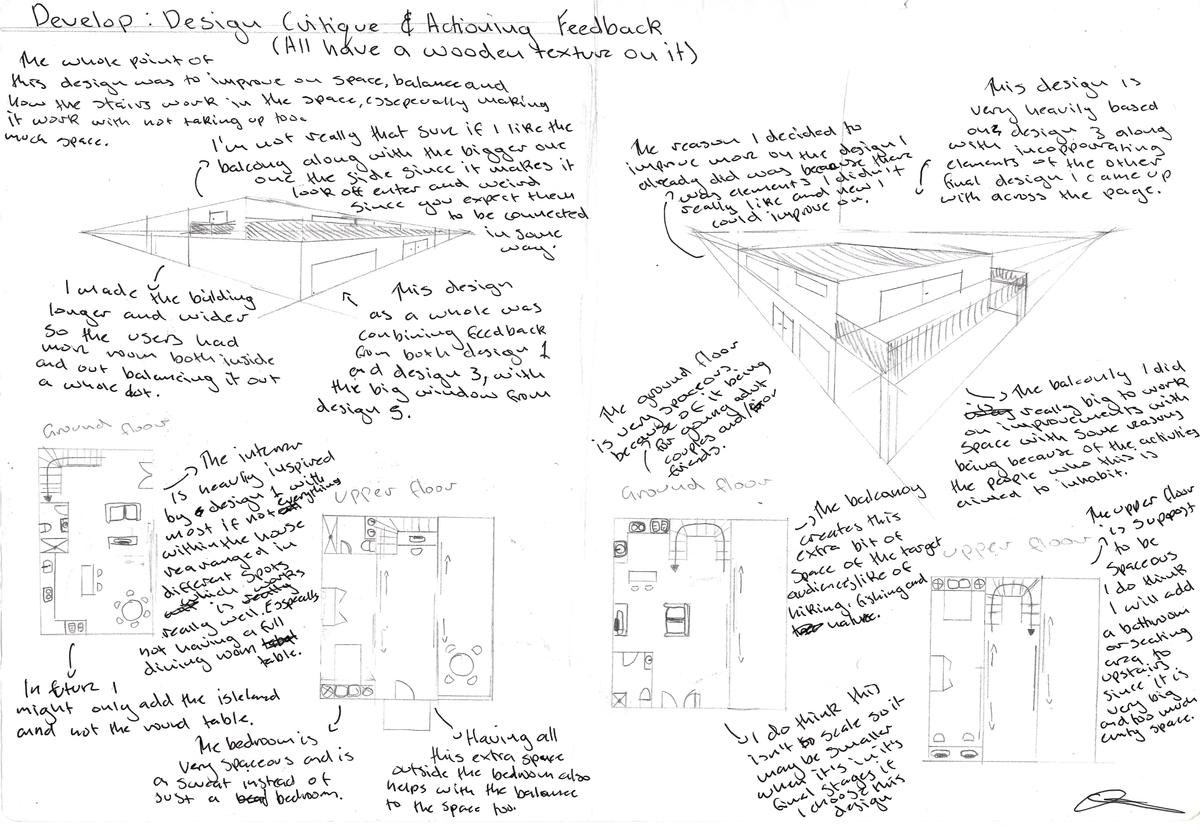 Develop: Design Critique & Actioning Feedback
(All have a wooden texture on it)
The whole point of
this design was to improve on space, balance and
how the stairs work in the space, essepeually making
it work with not taking up too
much space.
I'm not really that sure if I like the
balcony along with the bigger one
on the side since it makes it
look off enter and weird
since you expect them
to be connected
in some
way.
I made the bilding
longer and wider
so the users had
more room both inside
and out balancing it out
a whole lot.
This design
as a whole was
combining feedback
from both design 1
and design 3, with
the big window from
design 5.
Ground floor
The interior
is heavily inspired
by design 1 with
most if not everything
within the house
rearranged in
different spots
which works
is really
really well. Especially
not having a full
dining room
table.
In future I
might only add the isleland
annd not the round table.
upper floor
The bedroom is
very spaceous and is
a sweat instead of
just a bedroom.
Having all
this extra space
outside the bedroom also
helps with the balance
to the space too.
The reason I decided to
improve more on the design I
already did was because there
was elements I didn't
really like and new I
could improve on.
This design is
very heavily based
on design 3 along
with incopporating
elements of the other
final design I came up
with across the page.
The ground floor
is very spaceous
because of it being
for young adult
couples and/or
friends.
The balconly I did
really big to work
on improvements with
space with some reasons
being because of the activities
the people who this is
aimed to inhabit.
Ground floor
The balcanoy
creates this
extra bit of
space of the target
audiances like of
hiking, fishing and
nature.
I do think this
isn't to scale so it
may be smaller
when it's in it's
final stages if
I choose this
design
upper floor
The upper floor
is suppost
to be
spaceous
I do think
I will add
a bathroom
or seating
area to
upstairs
since it is
very big
and too much
emty space.